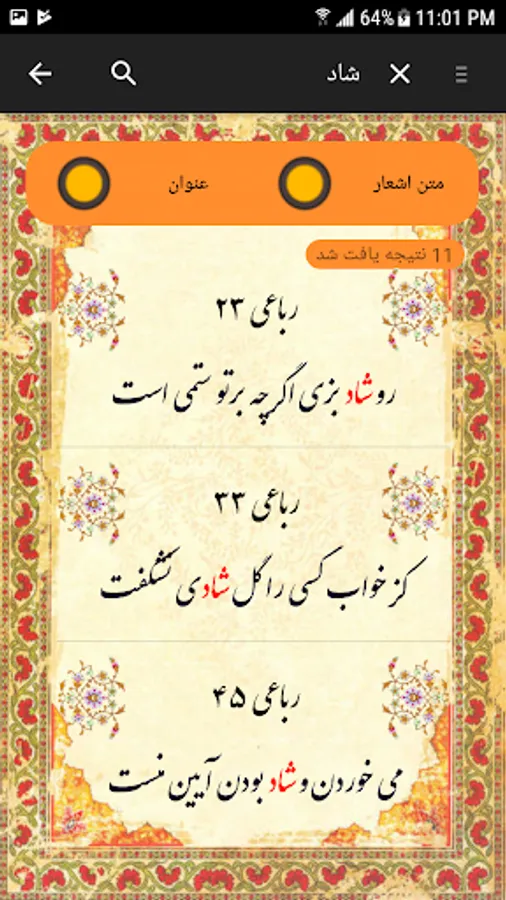 64% 11:01 PM
شاد
متن اشعار
عنوان
11 نتیجه یافت شد
رباعی ۲۳
رو شاد بزی اگرچه برتو ستمی است
رباعی ۳۳
کز خواب کسی را گل شادی نشکفت
رباعی ۴۵
می خوردن و شاد بودن آیین منست